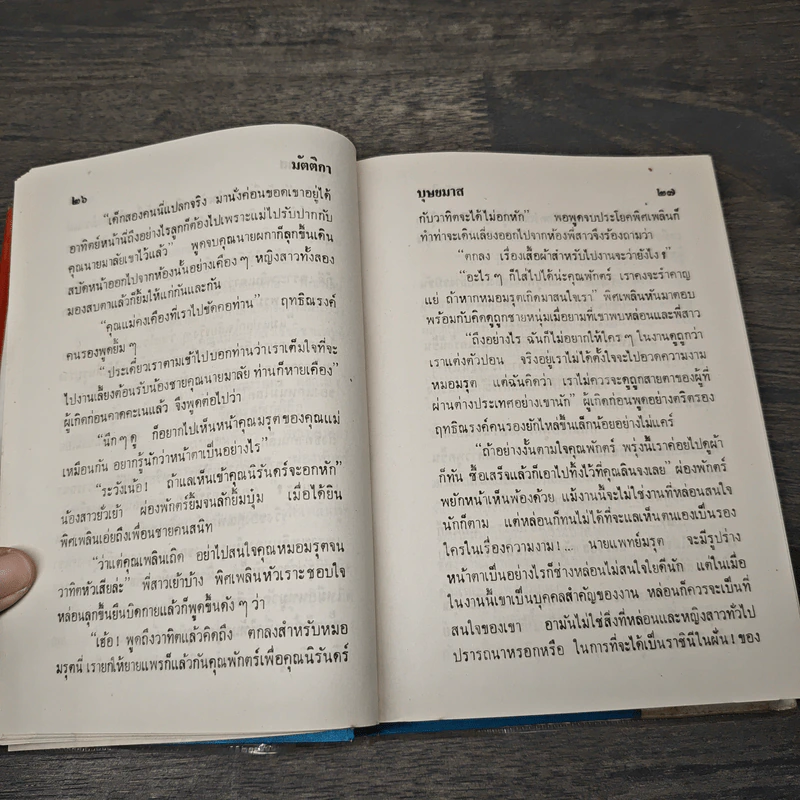 ๒๖
มัตติกา
“เด็กสองคนนี่แปลกจริง มานั่งค่อนขอดเขาอยู่ได้
อาทิตย์หน้านี่ถึงอย่างไรลูกก็ต้องไปเพราะแม่ไปรับปากกับ
คุณนายมาลัยเขาไว้แล้ว” พูดจบคุณนายผกาก็ลุกขึ้นเดิน
สบัดหน้าออกไปจากห้องนั้นอย่างเคือง ๆ หญิงสาวทั้งสอง
มองสบตาแล้วก็ยิ้มให้แก่กันและกัน
“คุณแม่คงเคืองที่เราไปขัดคอท่าน” ฤทธิณรงค์
คนรองพูดยิ้ม ๆ
“ประเดี๋ยวเราตามเข้าไปบอกท่านว่าเราเต็มใจที่จะ
ไปงานเลี้ยงต้อนรับน้องชายคุณนายมาลัย ท่านก็หายเคือง”
ผู้เกิดก่อนคาดคะเนแล้ว จึงพูดต่อไปว่า
“นึก ๆ ดู ก็อยากไปเห็นหน้าคุณมรุตของคุณแม่
เหมือนกัน อยากรู้นักว่าหน้าตาเป็นอย่างไร”
“ระวังเน้อ ! ถ้าแลเห็นเข้าคุณนิรันดร์จะอกหัก”
น้องสาวยั่วเย้า ผ่องพักตร์ยิ้มจนลักยิ้มบุ๋ม เมื่อได้ยิน
พิศเพลินเอ่ยถึงเพื่อนชายคนสนิท
“ว่าแต่คุณเพลินเถิด อย่าไปสนใจคุณหมอมรุตจน
วาทิตหัวเสียล่ะ” พี่สาวเย้าบ้าง พิศเพลินหัวเราะชอบใจ
หล่อนลุกขึ้นยืนบิดกายแล้วก็พูดขึ้นดัง ๆ ว่า
“เฮ้อ ! พูดถึงวาทิตแล้วคิดถึง ตกลงสำหรับหมอ
มรุตนี่ เรายกให้ยายแพรก็แล้วกันคุณพักตร์เพื่อคุณนิรันดร์
บุษยมาส
๒๗
กับวาทิตจะได้ไม่อกหัก” พอพูดจบประโยคพิศเพลินก็
ทำท่าจะเดินเลี่ยงออกไปจากห้องพี่สาวจึงร้องถามว่า
“ตกลง เรื่องเสื้อผ้าสำหรับไปงานจะว่ายังไง ?”
“อะไร ๆ ก็ใส่ไปได้น่ะคุณพักตร์ เราคงจะรำคาญ
แย่ ถ้าหากหมอมรุตเกิดมาสนใจเรา” พิศเพลินหันมาตอบ
พร้อมกับคิดดูถูกชายหนุ่มเมื่อยามที่เขาพบหล่อนและพี่สาว
“ถึงอย่างไร ฉันก็ไม่อยากให้ใคร ๆ ในงานดูถูกว่า
เราแต่งตัวปอน จริงอยู่เราไม่ได้ตั้งใจจะไปอวดความงาม
หมอมรุต แต่ฉันคิดว่า เราไม่ควรจะดูถูกสายตาของผู้ที่
ผ่านต่างประเทศอย่างเขานัก” ผู้เกิดก่อนพูดอย่างตริตรอง
ฤทธิณรงค์คนรองยักไหล่ขึ้นเล็กน้อยอย่างไม่แคร์
“ถ้าอย่างงั้นตามใจคุณพักตร์ พรุ่งนี้เราค่อยไปดูผ้า
ก็ทัน ซื้อเสร็จแล้วก็เอาไปทิ้งไว้ที่คุณลินจงเลย” ผ่องพักตร์
พยักหน้าเห็นพ้องด้วย แม้งานนี้จะไม่ใช่งานที่หล่อนสนใจ
นักก็ตาม แต่หล่อนก็ทนไม่ได้ที่จะแลเห็นตนเองเป็นรอง
ใครในเรื่องความงาม !... นายแพทย์มรุต จะมีรูปร่าง
หน้าตาเป็นอย่างไรก็ช่างหล่อนไม่สนใจใยดีนัก แต่ในเมื่อ
ในงานนี้เขาเป็นบุคคลสำคัญของงาน หล่อนก็ควรจะเป็นที่
สนใจของเขา อามันไม่ใช่สิ่งที่หล่อนและหญิงสาวทั่วไป
ปรารถนาหรอกหรือ ในการที่จะได้เป็นราชินีในฝัน ! ของ